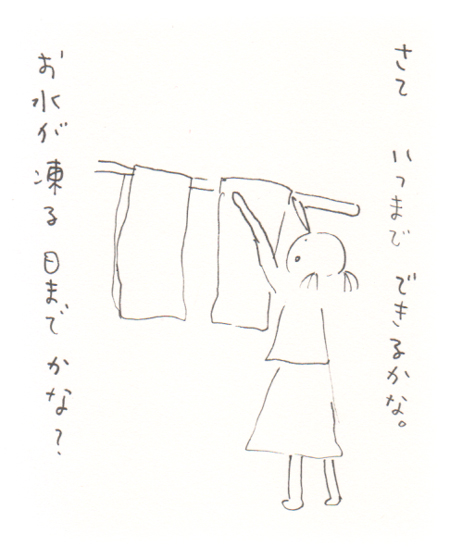 さて いつまで できるかな。
お水が 凍る 日まで かな？